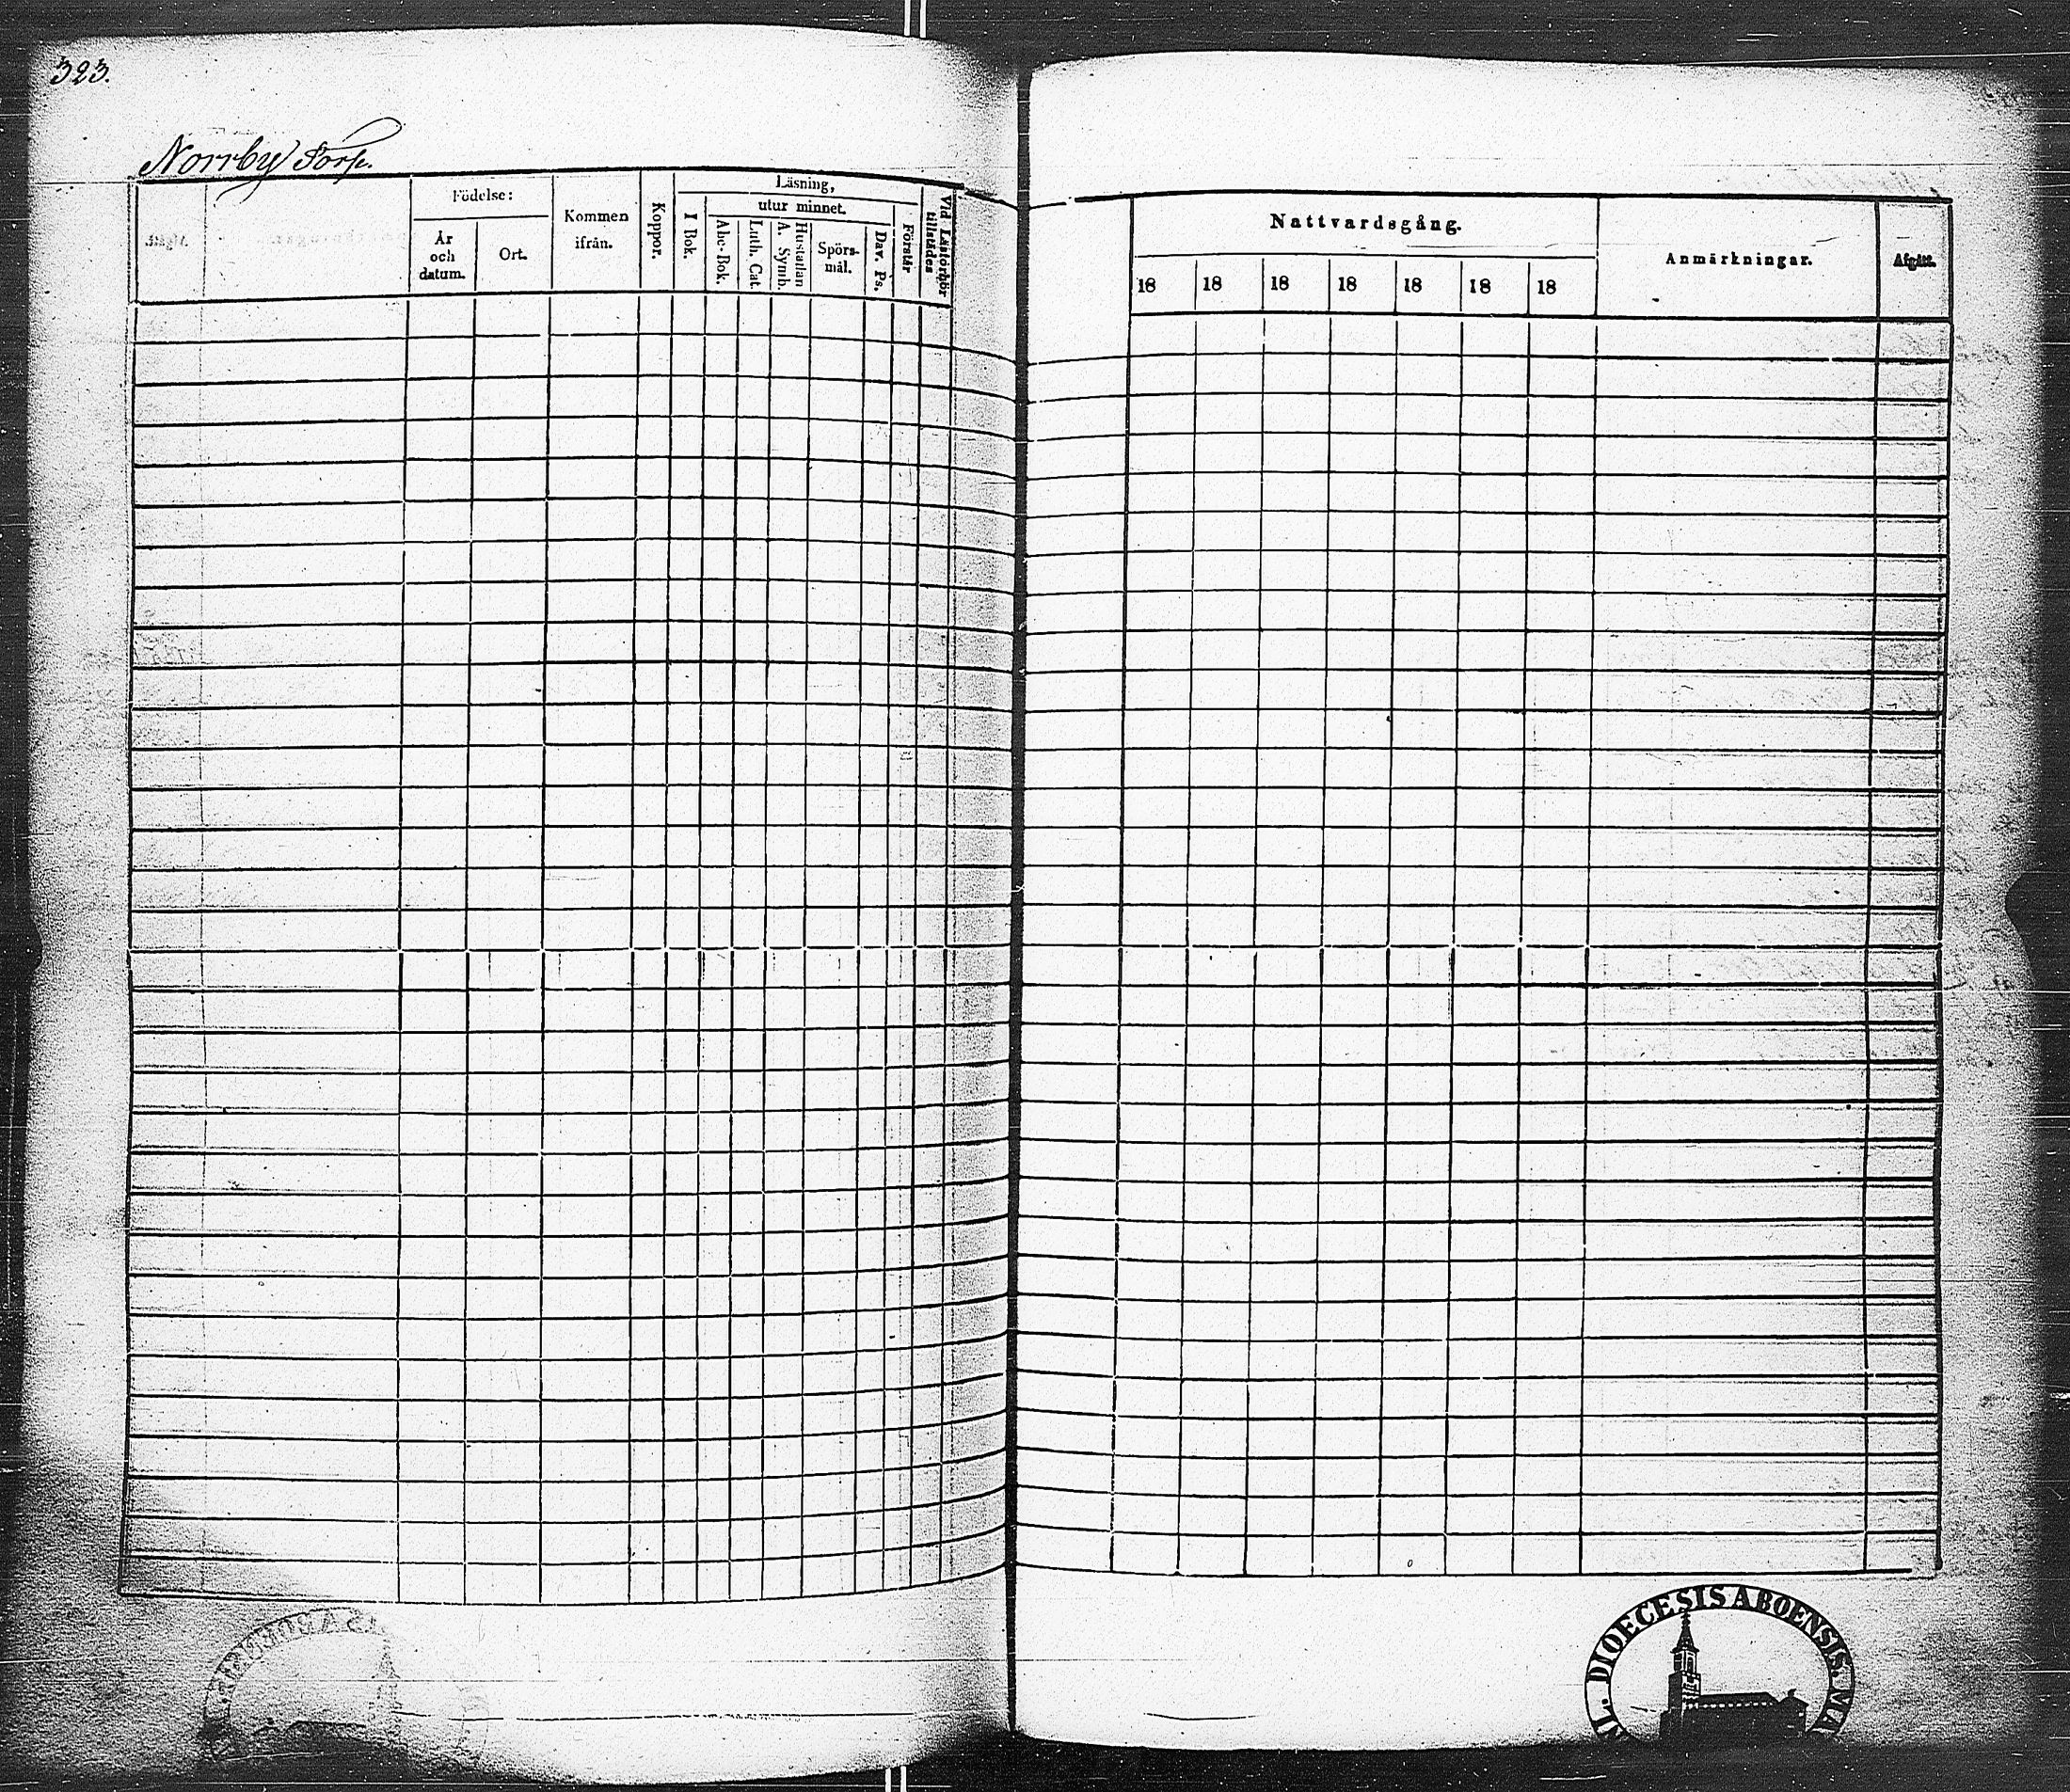 323.
Norrby Torp.
Födelse:
År och datum.
Ort.
Kommen ifrån.
Koppor.
Läsning,
I Bok.
utur minnet.
Abc-Bok.
Luth. Cat.
Hustaflan A. Symb.
Spörs-mål.
Dav. Ps.
Förstår
Vid Läsförhör tillstädes
Nattvardsgång.
18 18 18 18 18 18 18
Anmärkningar.
Afgått.
DIOECESIS ABOENSIS. MA